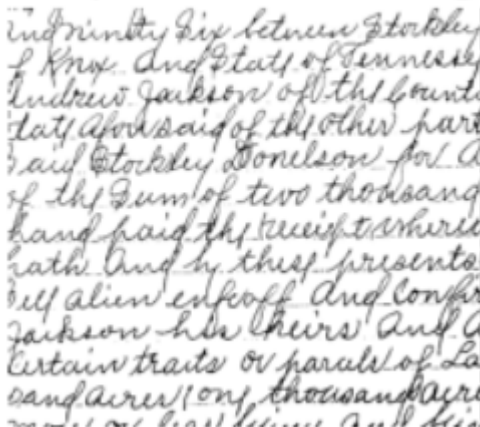 and ninety Six between Stockley
of Knox and State of Tennessee
Andrew Jackson of the Count
State aforesaid of the other part
Said Stockley Donelson for a
of the Sum of two thousand
hand paid the receipt where
hath And by these presents
Sell alien enfeoff And Confir
Jackson his heirs And a
Certain traits or parcels of La
sand acres one thousand acre
more or less lying And